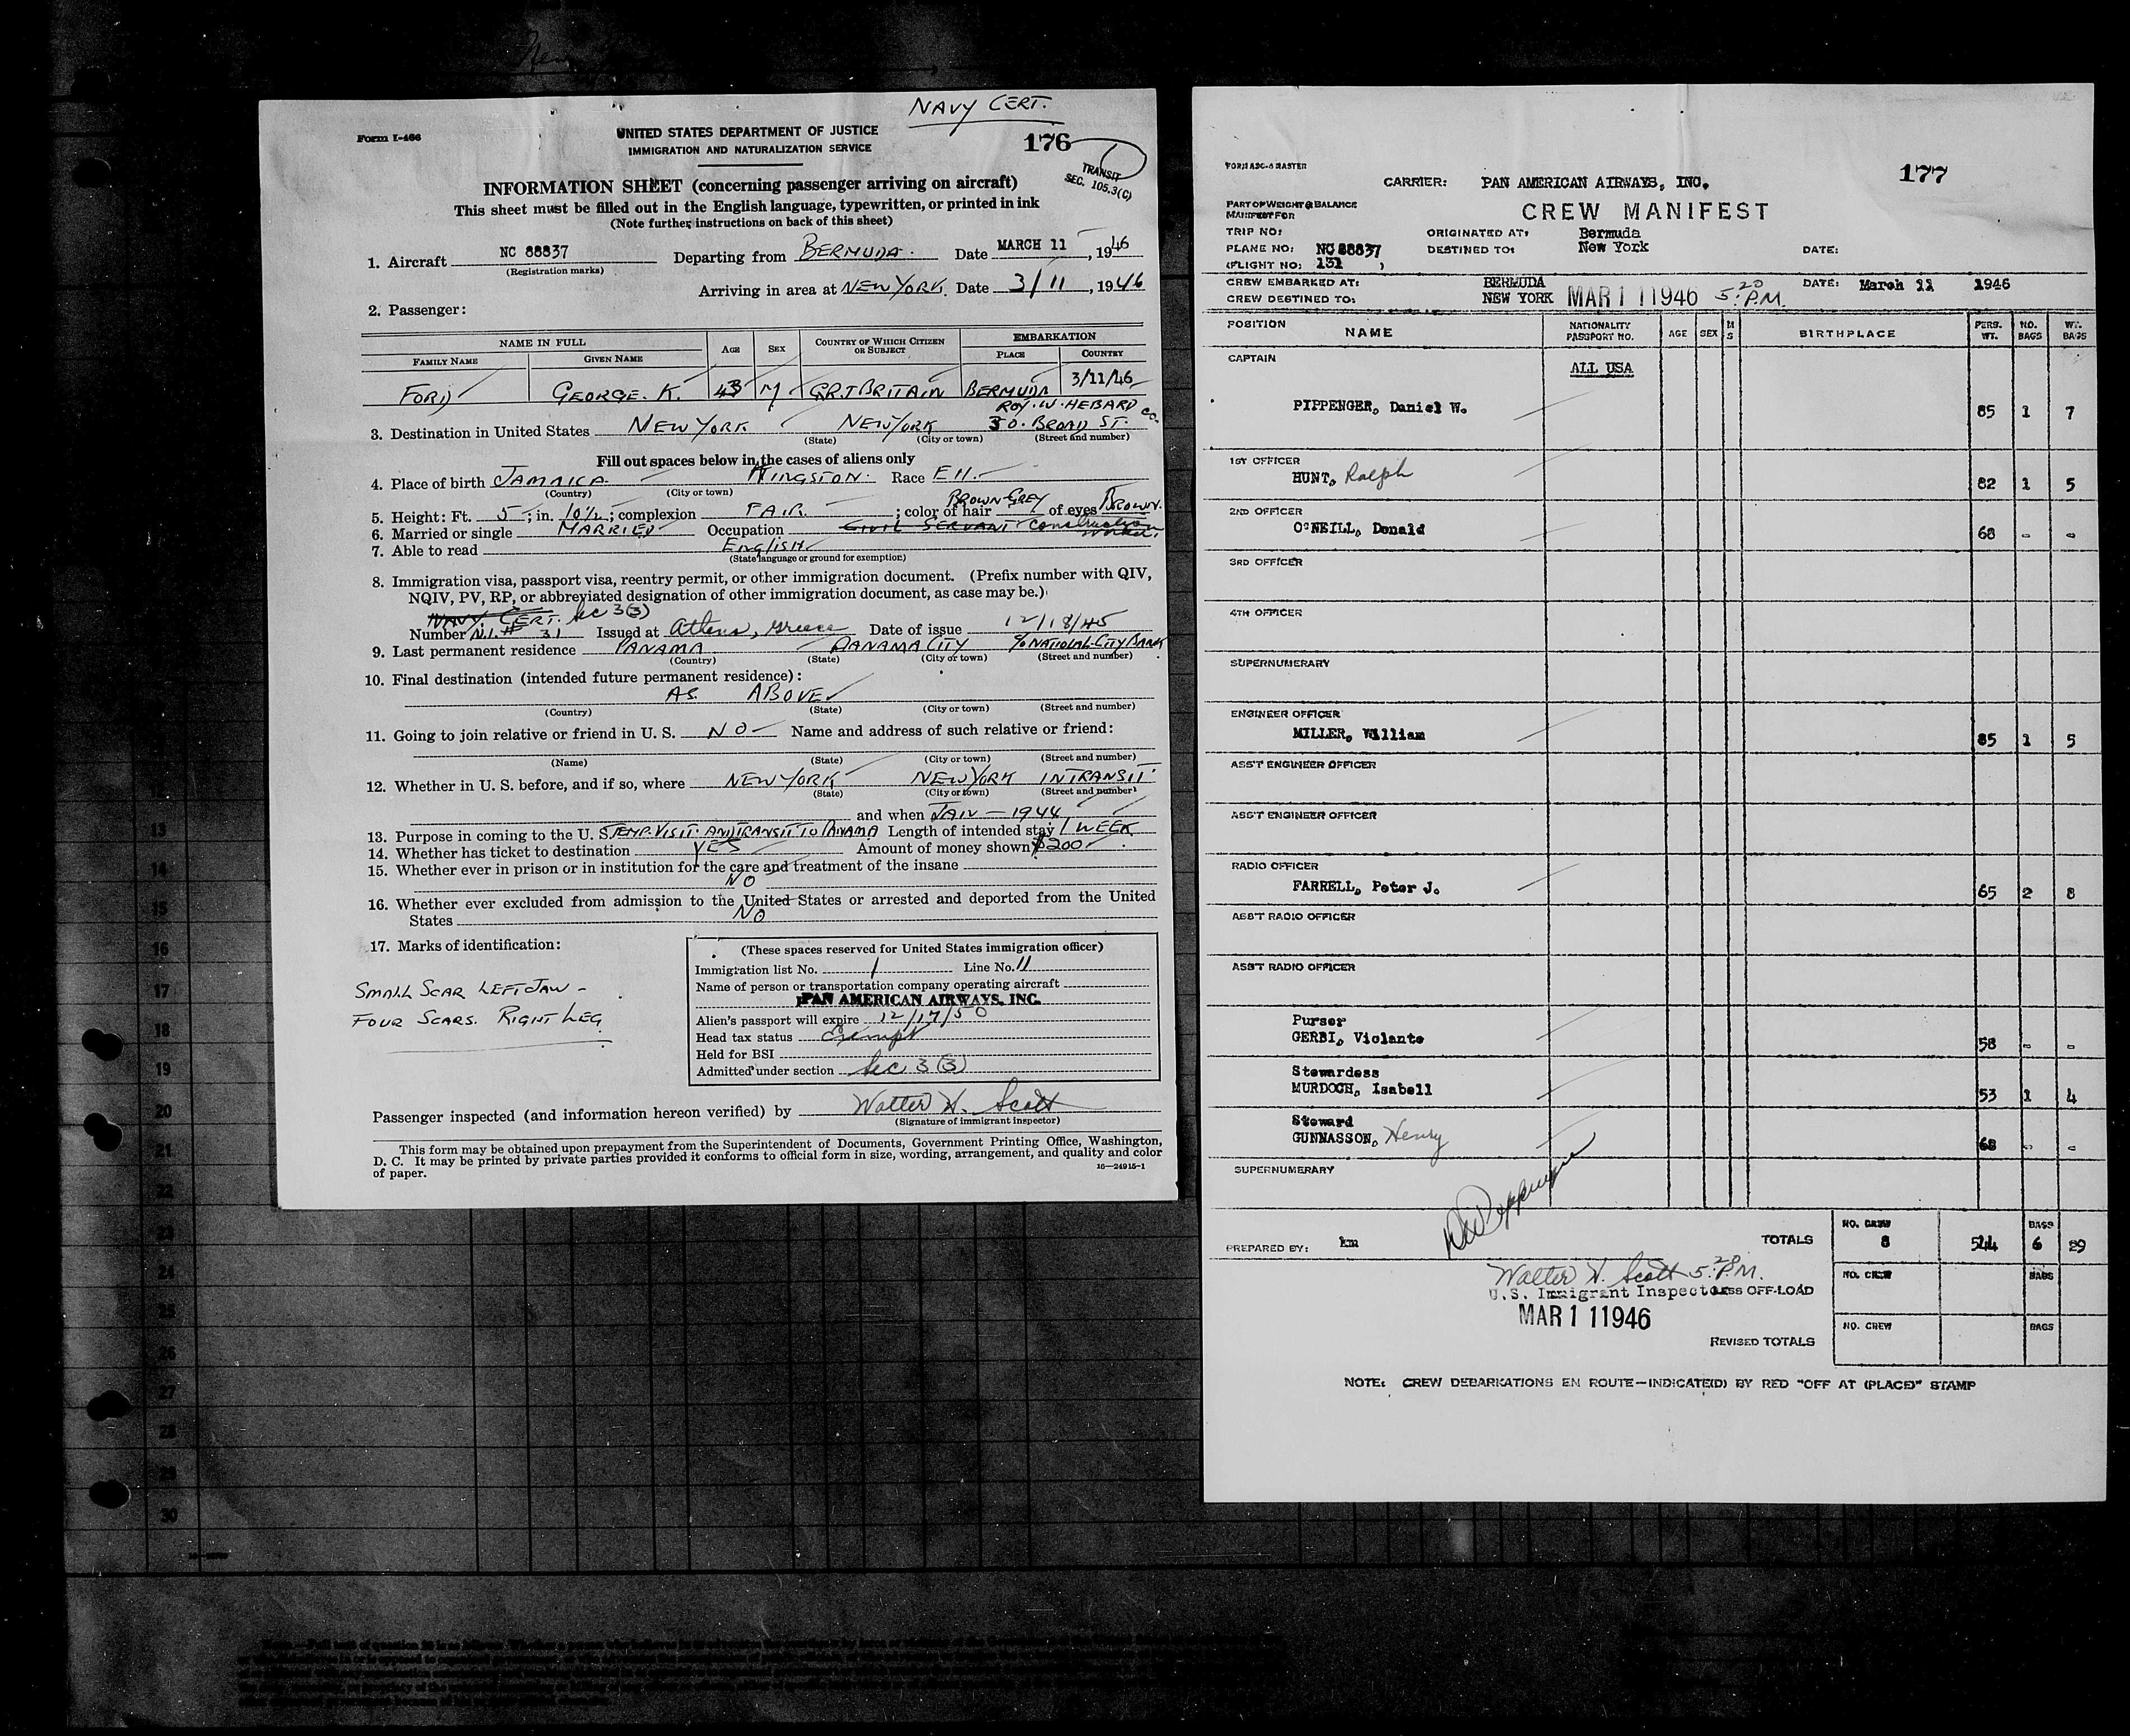 NAVY CERT.
Form I-466
UNITED STATES DEPARTMENT OF JUSTICE
IMMIGRATION AND NATURALIZATION SERVICE
176
TRANSIT
SEC. 105.3(C)
INFORMATION SHEET (concerning passenger arriving on aircraft)
This sheet must be filled out in the English language, typewritten, or printed in ink
(Note further instructions on back of this sheet)
1. Aircraft NC 88837 Departing from BERMUDA. Date MARCH 11, 1946
(Registration marks)
Arriving in area at NEW YORK. Date 3/11, 1946
2. Passenger:
NAME IN FULL AGE SEX COUNTRY OF WHICH CITIZEN OR SUBJECT EMBARKATION
FAMILY NAME GIVEN NAME PLACE COUNTRY
FORD GEORGE. K. 43 M GR.T BRITAIN BERMUDA 3/11/46
ROY. W. HEBARD CO.
3. Destination in United States NEW YORK NEW YORK 30. BROAD ST.
(State) (City or town) (Street and number)
Fill out spaces below in the cases of aliens only
4. Place of birth JAMAICA KINGSTON. Race
(Country) (City or town)
5. Height: Ft. 5; in. 10½; complexion FAIR; color of hair BROWN-GREY of eyes BROWN.
6. Married or single MARRIED Occupation CIVIL SERVANT construction worker.
7. Able to read ENGLISH
(State language or ground for exemption)
8. Immigration visa, passport visa, reentry permit, or other immigration document. (Prefix number with QIV,
NQIV, PV, RP, or abbreviated designation of other immigration document, as case may be.)
NAVY CERT. Sec 3(3)
Number N.I. # 31 Issued at Athens, Greece Date of issue 12/18/45
9. Last permanent residence PANAMA PANAMA CITY c/o NATIONAL CITY BANK
(Country) (State) (City or town) (Street and number)
10. Final destination (intended future permanent residence):
AS ABOVE
(Country) (State) (City or town) (Street and number)
11. Going to join relative or friend in U. S. NO Name and address of such relative or friend:
(Name) (State) (City or town) (Street and number)
12. Whether in U. S. before, and if so, where NEW YORK NEW YORK IN TRANSIT
(State) (City or town) (Street and number)
and when JAN - 1944
13. Purpose in coming to the U. S. TEMP. VISIT. AND TRANSIT TO PANAMA Length of intended stay 1 WEEK
14. Whether has ticket to destination YES Amount of money shown $200
15. Whether ever in prison or in institution for the care and treatment of the insane
NO
16. Whether ever excluded from admission to the United States or arrested and deported from the United
States NO
17. Marks of identification:
SMALL SCAR LEFT JAW -
FOUR SCARS. RIGHT LEG
(These spaces reserved for United States immigration officer)
Immigration list No. 1 Line No. 11
Name of person or transportation company operating aircraft
PAN AMERICAN AIRWAYS, INC.
Alien's passport will expire 12/17/50
Head tax status Exempt
Held for BSI
Admitted under section Sec 3(3)
Passenger inspected (and information hereon verified) by Walter W. Scott
(Signature of immigrant inspector)
This form may be obtained upon prepayment from the Superintendent of Documents, Government Printing Office, Washington,
D. C. It may be printed by private parties provided it conforms to official form in size, wording, arrangement, and quality and color
of paper.
16—24915-1
177
CARRIER: PAN AMERICAN AIRWAYS, INC.
PART OF WEIGHT & BALANCE
MANIFEST FOR
CREW MANIFEST
TRIP NO: ORIGINATED AT: Bermuda
PLANE NO: NC 88837 DESTINED TO: New York DATE:
(FLIGHT NO: 131 )
CREW EMBARKED AT: BERMUDA DATE: March 11 1946
CREW DESTINED TO: NEW YORK MAR 11 1946 5:20 P.M.
POSITION NAME NATIONALITY PASSPORT NO. AGE SEX M S BIRTHPLACE PERS. WT. NO. BAGS WT. BAGS
CAPTAIN ALL USA
PIPPENGER, Daniel W. 85 1 7
1ST OFFICER
HUNT, Ralph 82 1 5
2ND OFFICER
O'NEILL, Donald 68 - -
3RD OFFICER
4TH OFFICER
SUPERNUMERARY
ENGINEER OFFICER
MILLER, William 85 1 5
ASS'T ENGINEER OFFICER
ASS'T ENGINEER OFFICER
RADIO OFFICER
FARRELL, Peter J. 65 2 8
ASS'T RADIO OFFICER
ASS'T RADIO OFFICER
Purser
GERBI, Violante 58 - -
Stewardess
MURDOCH, Isabell 53 1 4
Steward
GUNNASSON, Henry 68 - -
SUPERNUMERARY
DW Pippenger
PREPARED BY: km TOTALS NO. CREW 8 544 BAGS 6 29
Walter W. Scott 5:20 P.M.
U.S. Immigrant Inspector LESS OFF-LOAD NO. CREW BAGS
MAR 11 1946
REVISED TOTALS NO. CREW BAGS
NOTE: CREW DEBARKATIONS EN ROUTE—INDICATE(D) BY RED "OFF AT (PLACE)" STAMP
13
14
15
16
17
18
19
20
21
22
23
24
25
26
27
28
29
30